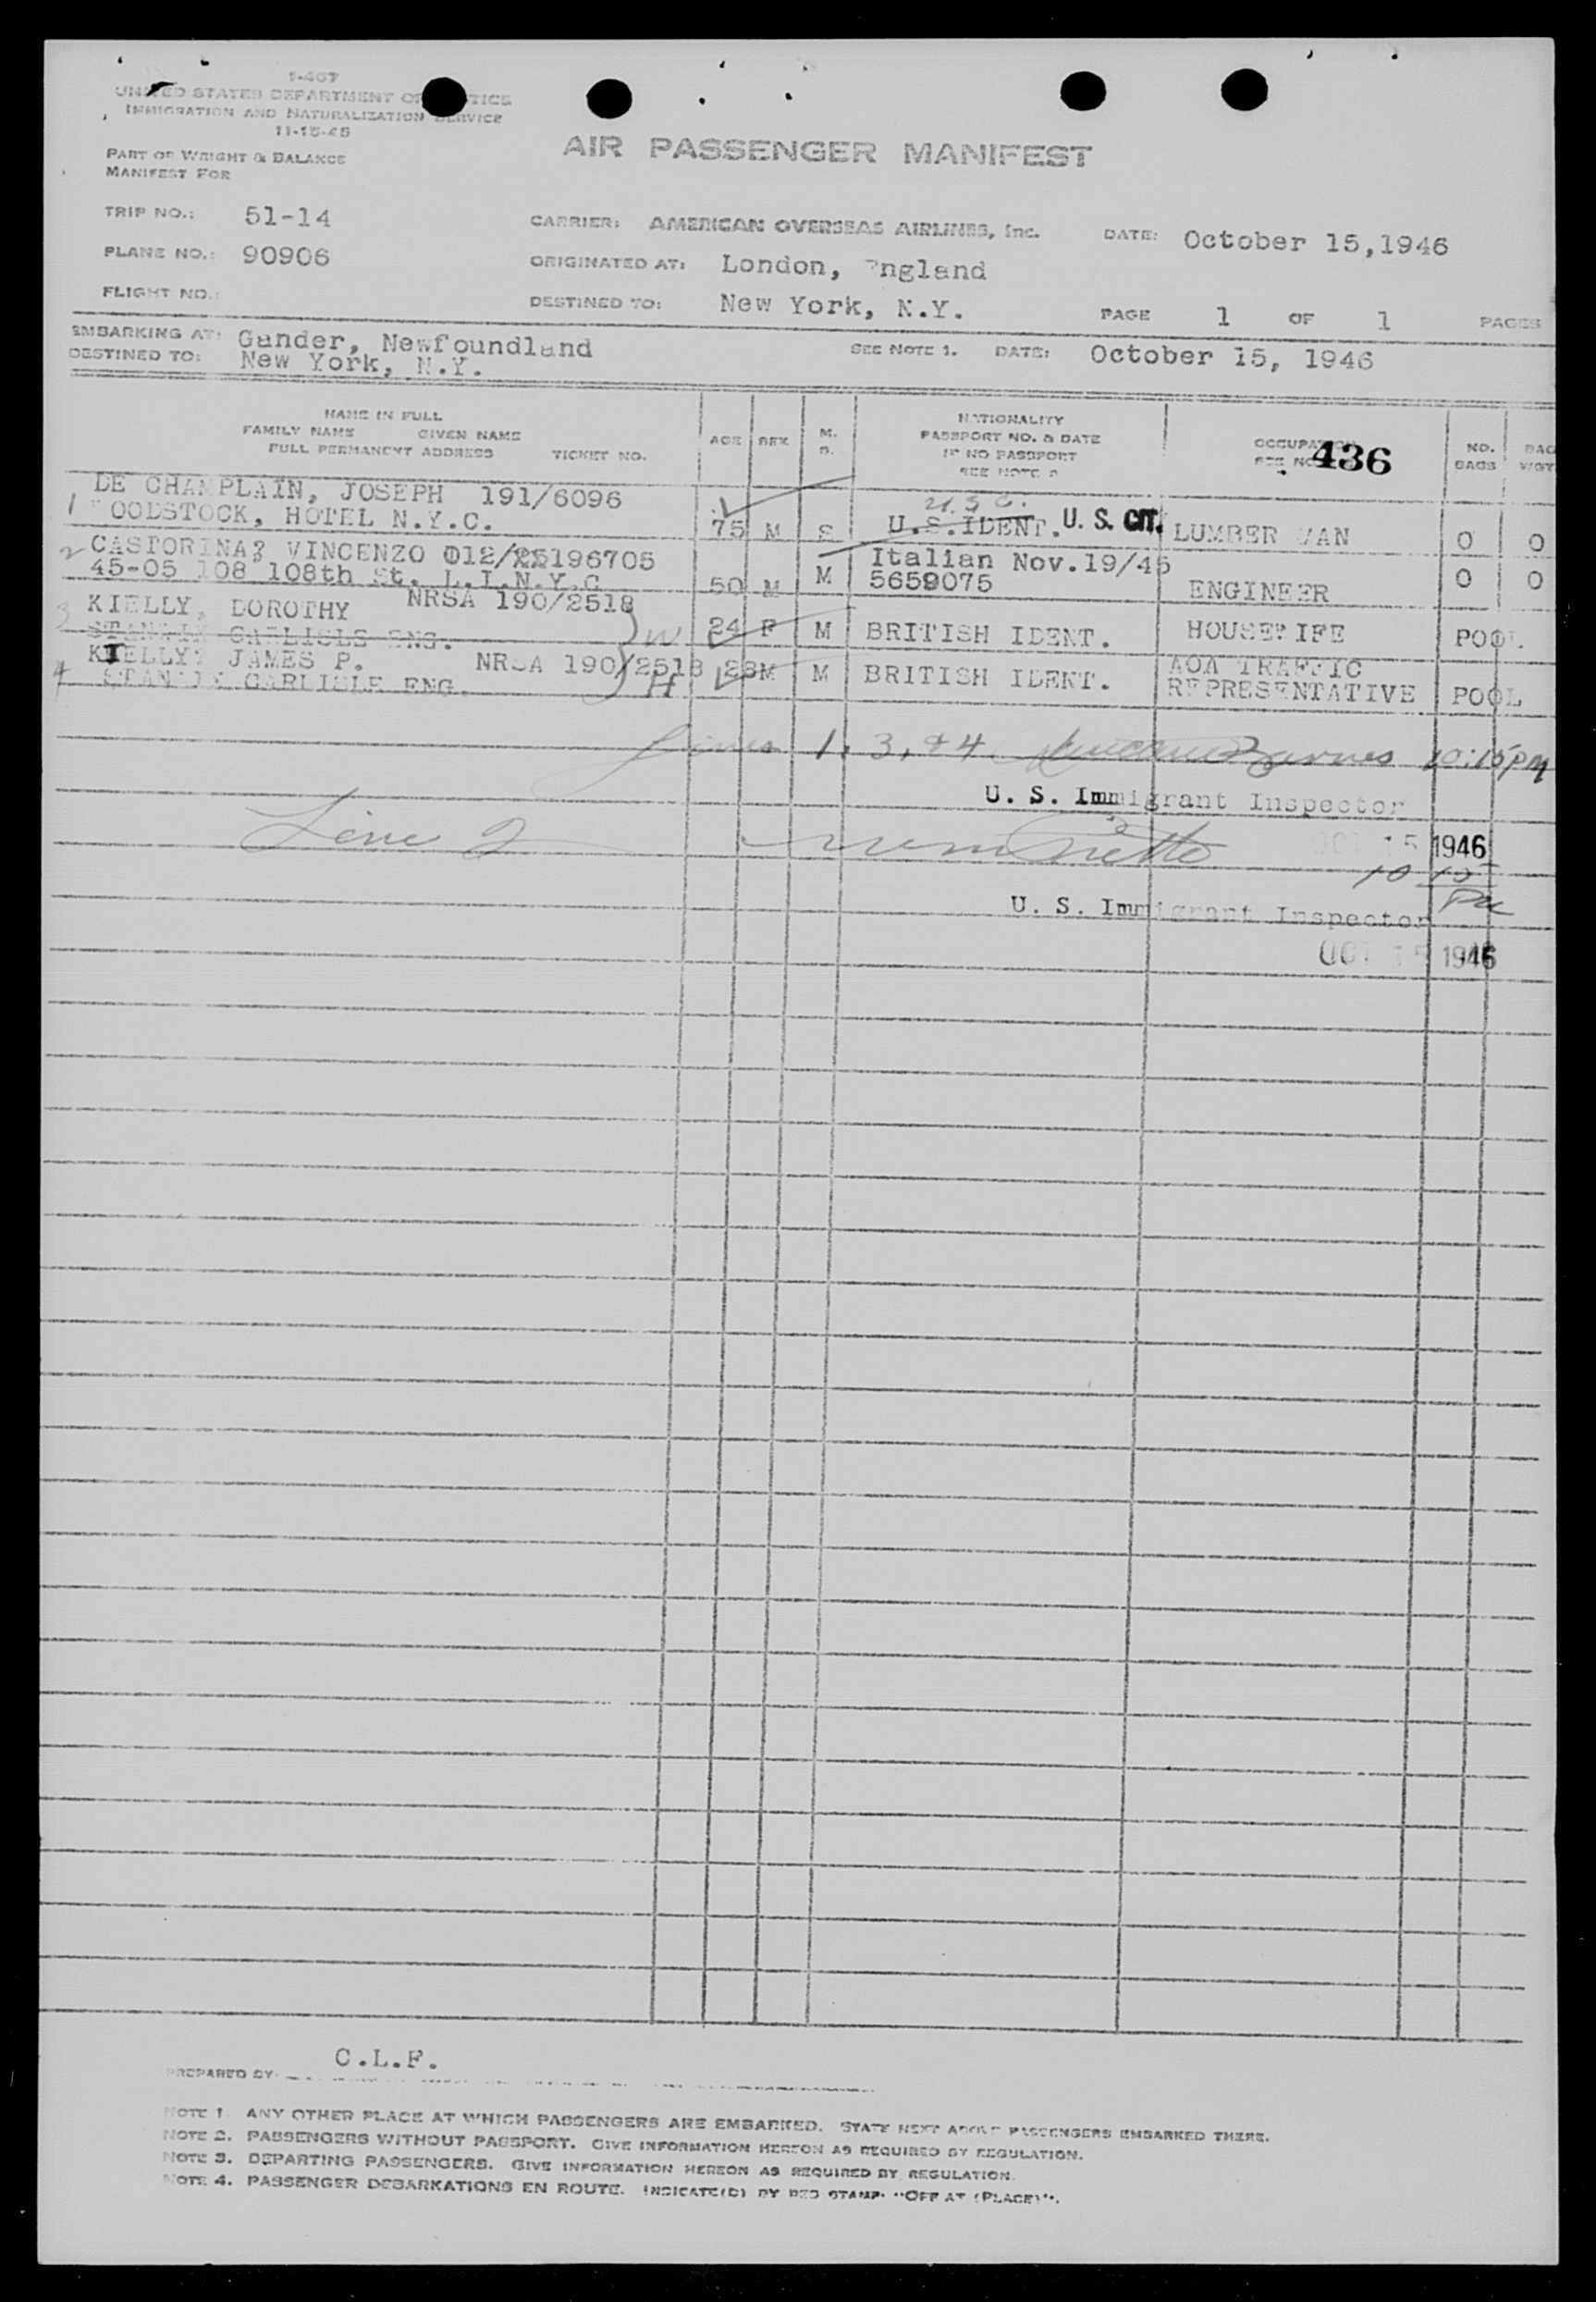 I-467
UNITED STATES DEPARTMENT OF JUSTICE
IMMIGRATION AND NATURALIZATION SERVICE
11-15-45
PART OF WEIGHT & BALANCE
MANIFEST FOR
AIR PASSENGER MANIFEST
TRIP NO.: 51-14 CARRIER: AMERICAN OVERSEAS AIRLINES, Inc. DATE: October 15,1946
PLANE NO.: 90906 ORIGINATED AT: London, England
FLIGHT NO.: DESTINED TO: New York, N.Y. PAGE 1 OF 1 PAGES
EMBARKING AT: Gander, Newfoundland SEE NOTE 1. DATE: October 15, 1946
DESTINED TO: New York, N.Y.
NAME IN FULL
FAMILY NAME GIVEN NAME
FULL PERMANENT ADDRESS TICKET NO.
AGE SEX M. S.
NATIONALITY
PASSPORT NO. & DATE
IF NO PASSPORT
SEE NOTE 2
OCCUPATION
SEE NO 436
NO. BAGS
BAG WGT
DE CHAMPLAIN, JOSEPH 191/6096 U.S.C.
1 WOODSTOCK, HOTEL N.Y.C. 75 M S U.S.IDENT. U. S. CIT. LUMBER MAN 0 0
2 CASTORINA? VINCENZO 012/22196705 Italian Nov.19/45
45-05 108 108th St. L.I.N.Y.C 50 M M 5659075 ENGINEER 0 0
3 KIELLY, DOROTHY NRSA 190/2518 W 24 F M BRITISH IDENT. HOUSEWIFE POOL
CARLISLE ENG.
4 KIELLY? JAMES P. NRSA 190/2518 H 28 M M BRITISH IDENT. AOA TRAFFIC
CARLISLE ENG. REPRESENTATIVE POOL
Lines 1, 3, & 4 Barnes 10:15PM
U. S. Immigrant Inspector
Line 2 OCT 15 1946
10 15
PM
U. S. Immigrant Inspector
OCT 15 1946
PREPARED BY C.L.F.
NOTE 1. ANY OTHER PLACE AT WHICH PASSENGERS ARE EMBARKED. STATE NEXT ABOVE PASSENGERS EMBARKED THERE.
NOTE 2. PASSENGERS WITHOUT PASSPORT. GIVE INFORMATION HEREON AS REQUIRED BY REGULATION.
NOTE 3. DEPARTING PASSENGERS. GIVE INFORMATION HEREON AS REQUIRED BY REGULATION.
NOTE 4. PASSENGER DEBARKATIONS EN ROUTE. INDICATE(D) BY RED STAMP. "OFF AT (PLACE)".